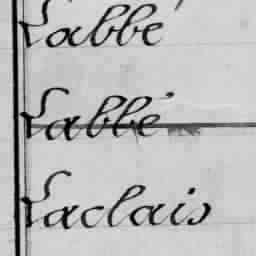 Labbé
Labbé
Laclais